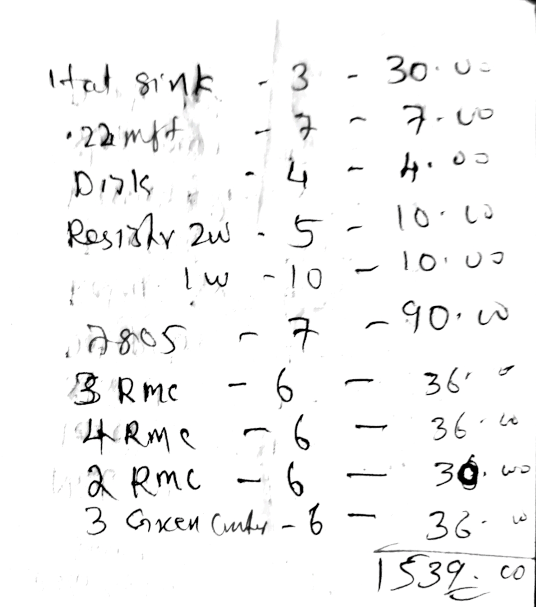 Heat sink - 3 - 30.00
.22 mft - 7 - 7.00
Disk - 4 - 4.00
Resistor 2w - 5 - 10.00
1w - 10 - 10.00
7805 - 7 - 90.00
3 Rmc - 6 - 36.0
4 Rmc - 6 - 36.00
2 Rmc - 6 - 30.00
3 Green - 6 - 36.00
1539.00